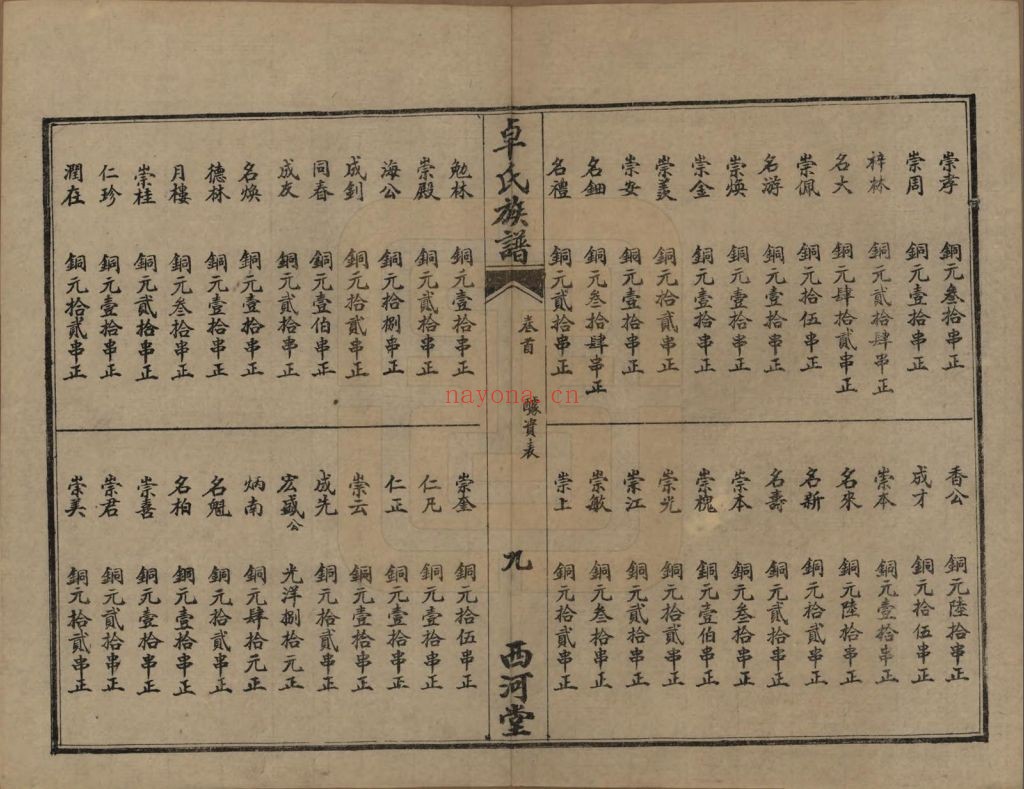 崇孝 銅元叁拾串正
崇周 銅元壹拾串正
梓林 銅元貳拾肆串正
名大 銅元肆拾貳串正
崇佩 銅元拾伍串正
名游 銅元壹拾串正
崇煥 銅元壹拾串正
崇金 銅元壹拾串正
崇美 銅元拾貳串正
崇安 銅元壹拾串正
名鈿 銅元叁拾肆串正
名禮 銅元貳拾串正
香公 銅元陸拾串正
成才 銅元拾伍串正
崇本 銅元壹拾串正
名來 銅元陸拾串正
名新 銅元拾貳串正
名壽 銅元貳拾串正
崇本 銅元叁拾串正
崇槐 銅元壹伯串正
崇光 銅元拾貳串正
崇江 銅元貳拾串正
崇敏 銅元叁拾串正
崇上 銅元拾貳串正
卓氏族譜
卷首
醵貲表
九
西河堂
勉林 銅元壹拾串正
崇殿 銅元貳拾串正
海公 銅元拾捌串正
成釗 銅元拾貳串正
同春 銅元壹伯串正
成友 銅元貳拾串正
名煥 銅元壹拾串正
德林 銅元壹拾串正
月樓 銅元叁拾串正
崇桂 銅元貳拾串正
仁珍 銅元壹拾串正
潤在 銅元拾貳串正
崇奎 銅元拾伍串正
仁凡 銅元壹拾串正
仁正 銅元壹拾串正
崇云 銅元壹拾串正
成光 銅元拾貳串正
宏盛公 光洋捌拾元正
炳南 銅元肆拾元正
名魁 銅元拾貳串正
名柏 銅元壹拾串正
崇喜 銅元壹拾串正
崇君 銅元貳拾串正
崇美 銅元拾貳串正
nayona.cn